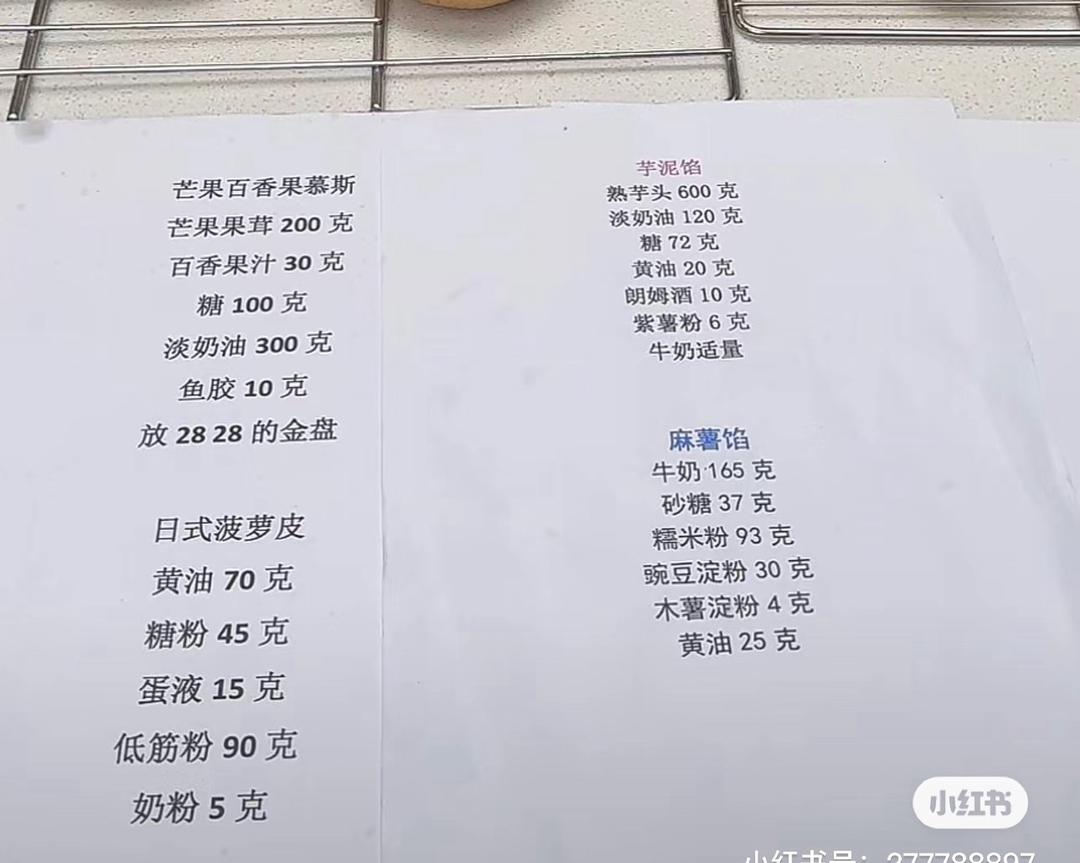 芒果百香果慕斯
芒果果茸 200 克
百香果汁 30 克
糖 100 克
淡奶油 300 克
鱼胶 10 克
放 28 28 的金盘
日式菠萝皮
黄油 70 克
糖粉 45 克
蛋液 15 克
低筋粉 90 克
奶粉 5 克
芋泥馅
熟芋头 600 克
淡奶油 120 克
糖 72 克
黄油 20 克
朗姆酒 10 克
紫薯粉 6 克
牛奶适量
麻薯馅
牛奶 165 克
砂糖 37 克
糯米粉 93 克
豌豆淀粉 30 克
木薯淀粉 4 克
黄油 25 克
小红书
小红书号：277788897